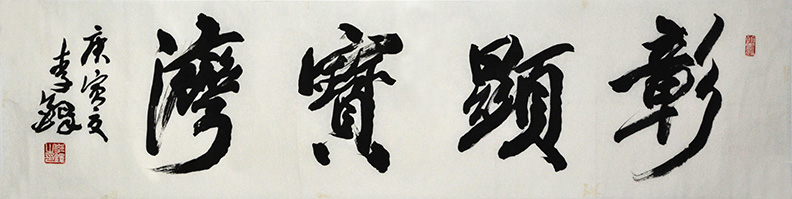 彰顯寶灣
庚寅夏
李鐸